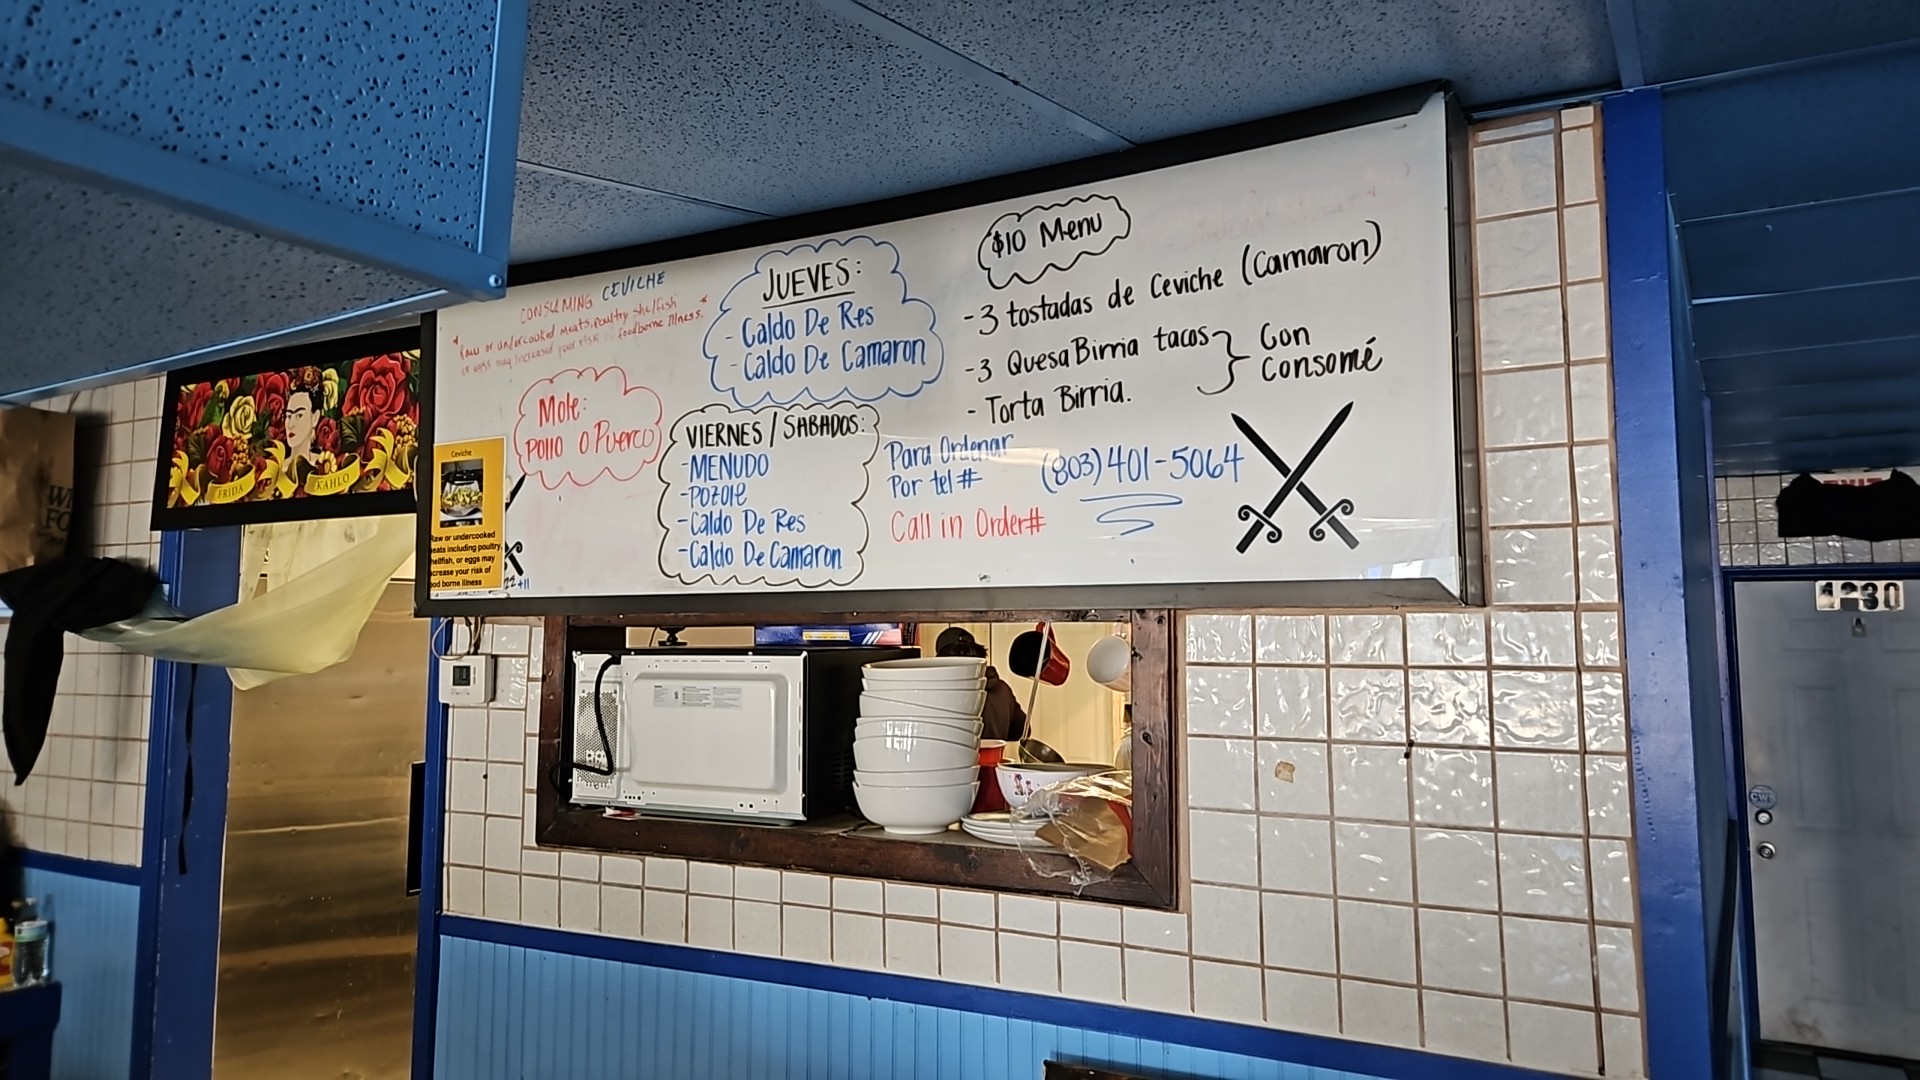 CONSUMING CEVICHE
* Raw or undercooked meats, poultry shellfish *
or eggs may increased your risk of foodborne illness.
Mole:
Pollo o Puerco
JUEVES:
- Caldo De Res
- Caldo De Camaron
VIERNES / SABADOS:
-MENUDO
-POZOLE
-Caldo De Res
-Caldo De Camaron
$10 Menu
-3 tostadas de Ceviche (Camaron)
-3 QuesaBirria tacos
- Torta Birria.
} Con
Consomé
Para Ordenar
Por tel #
(803) 401-5064
Call in Order#
Ceviche
Raw or undercooked
eats including poultry,
hellfish, or eggs may
crease your risk of
ood borne illness
FRIDA KAHLO
EXIT